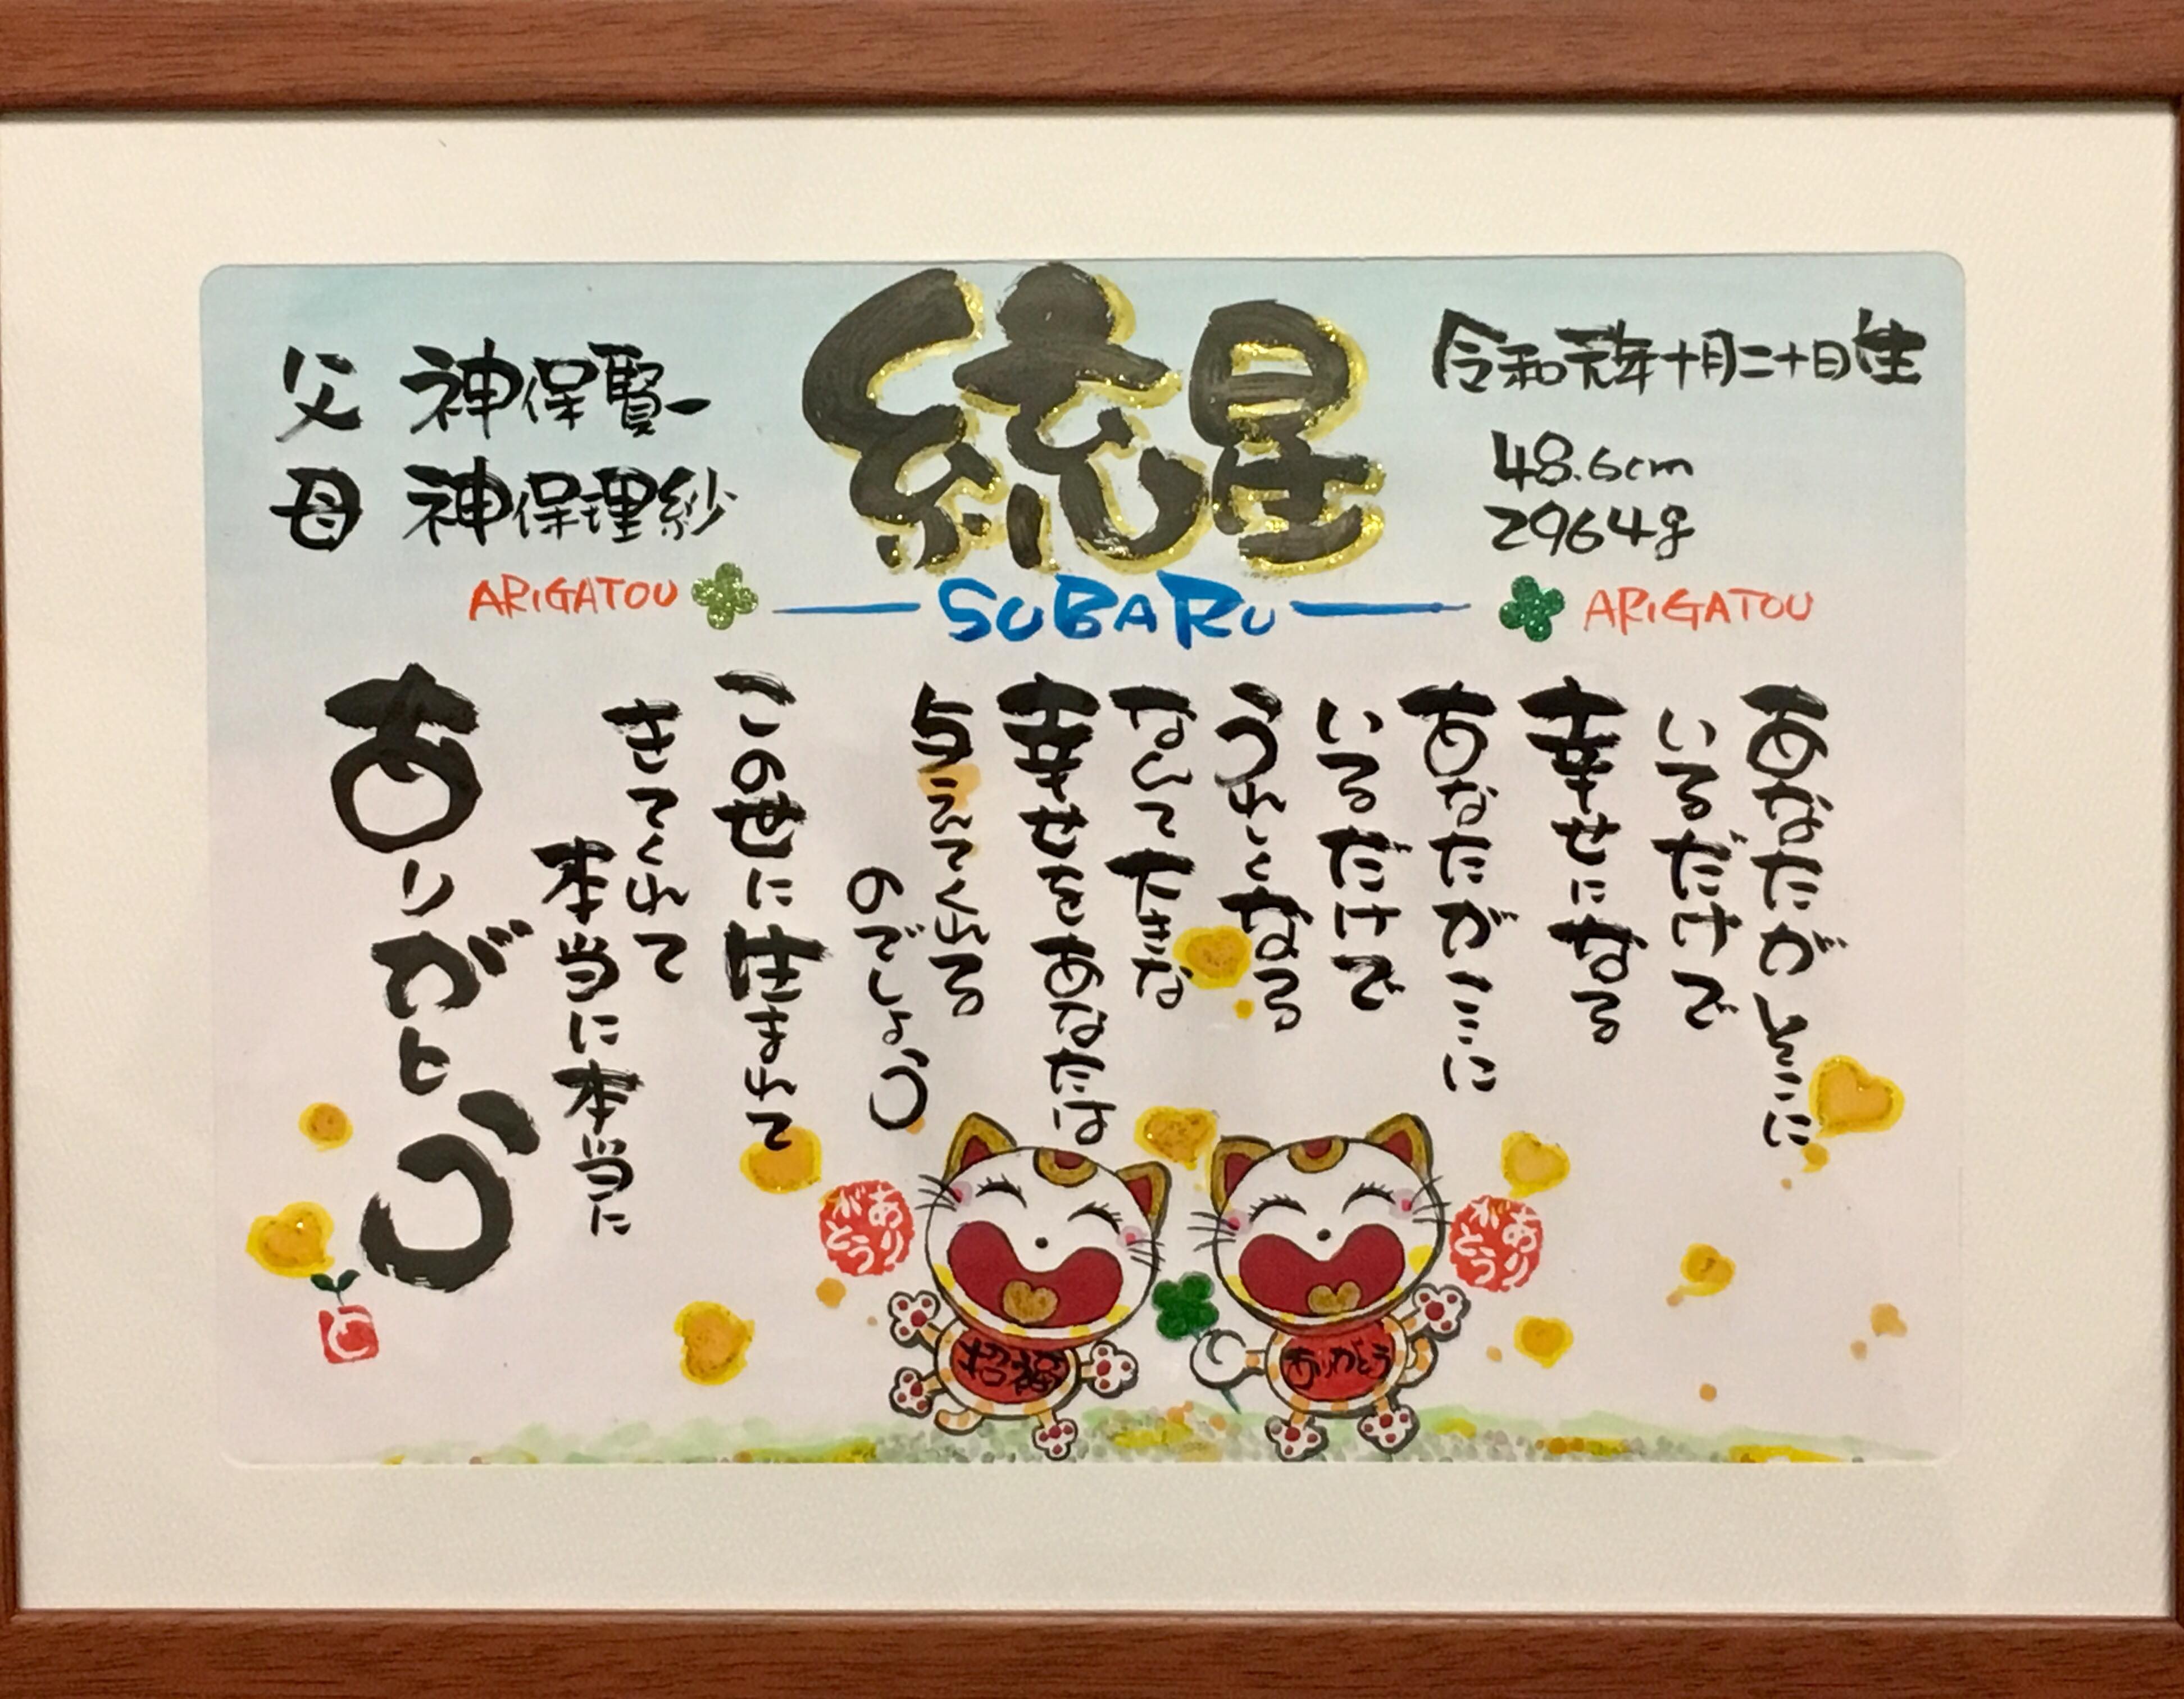 統星
SUBARU
令和元年十月二十日生
48.6cm
2964g
父 神保賢一
母 神保理紗
ARIGATOU
ARIGATOU
あなたがそこに
いるだけで
幸せになる
あなたがここに
いるだけで
うれしくなる
なんて大きな
幸せをあなたは
与えてくれる
のでしょう
この世に生まれて
きてくれて
本当に本当に
ありがとう
ありがとう
ありがとう
招福
ありがとう